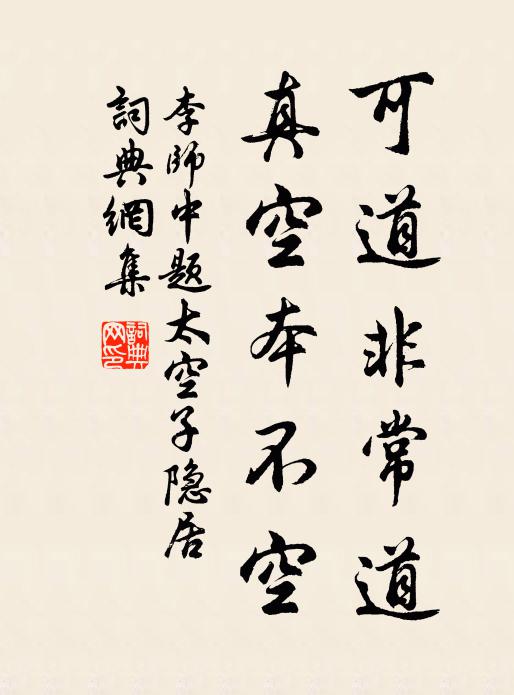 可道非常道
真空本不空
李師中題太空子隐居
詞典網集
詞典網印